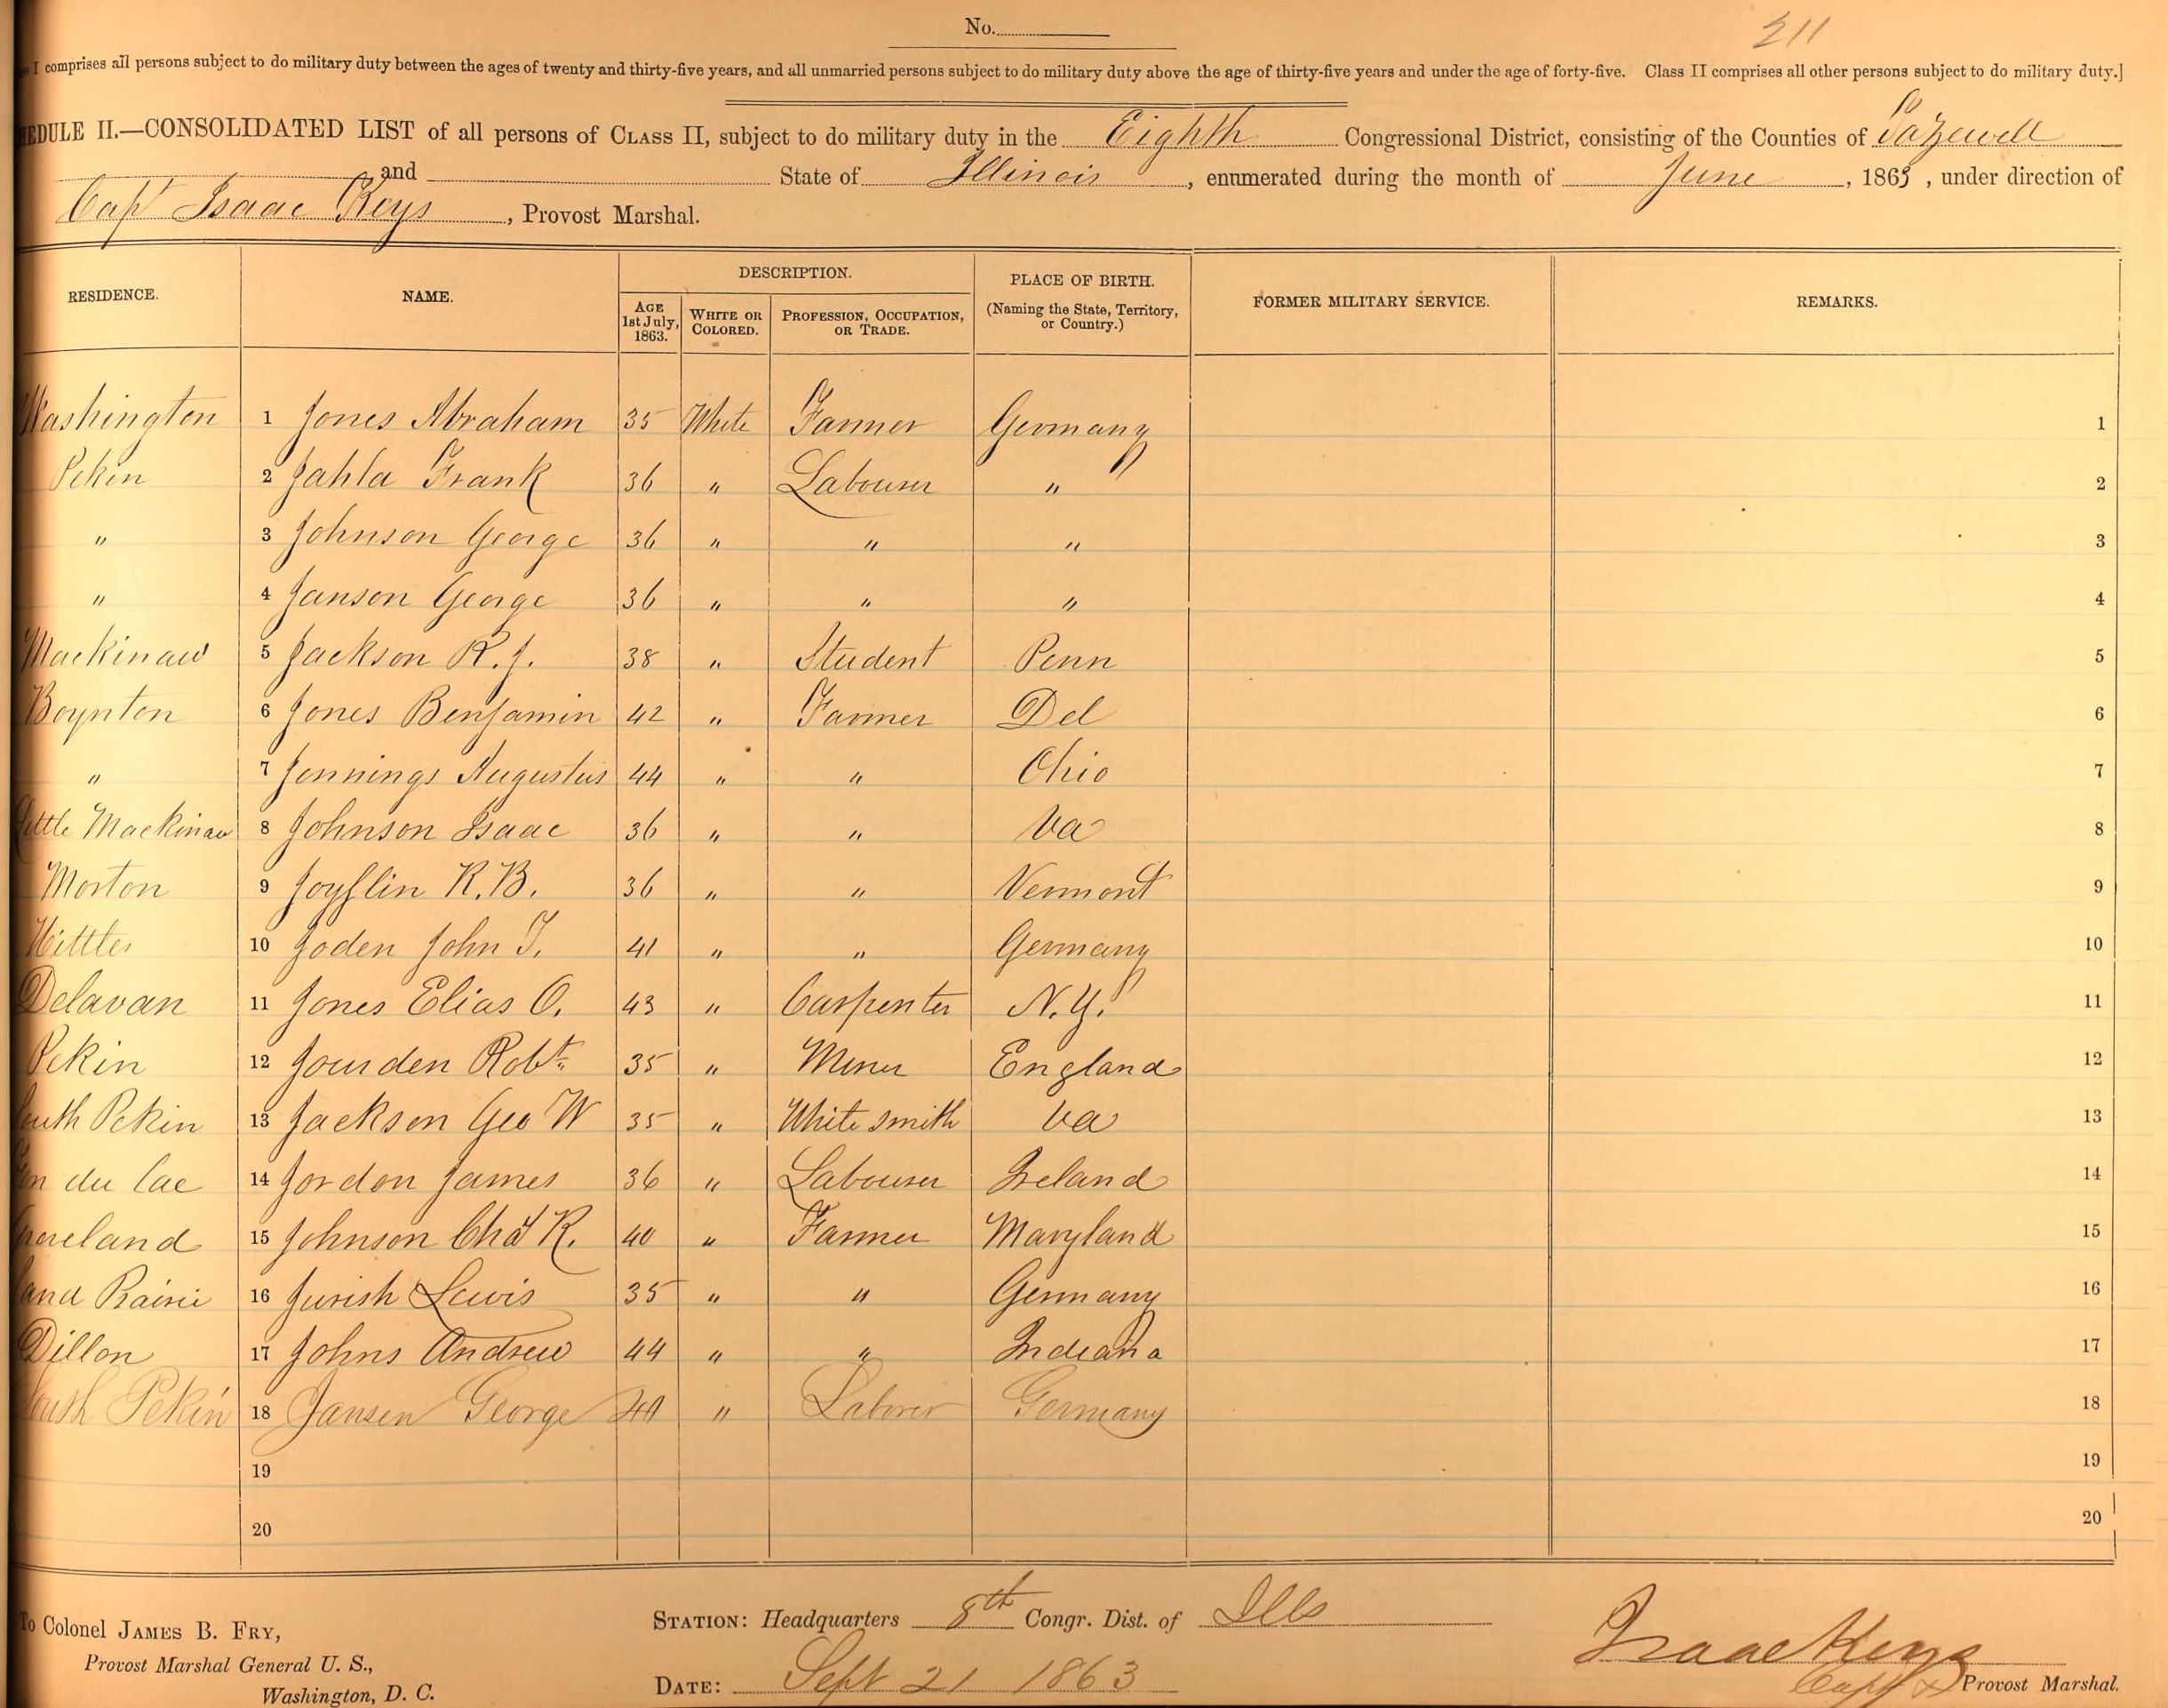 No.
211
I comprises all persons subject to do military duty between the ages of twenty and thirty-five years, and all unmarried persons subject to do military duty above the age of thirty-five years and under the age of forty-five. Class II comprises all other persons subject to do military duty.]
EDULE II.—CONSOLIDATED LIST of all persons of CLASS II, subject to do military duty in the Eighth Congressional District, consisting of the Counties of Tazewell
and State of Illinois, enumerated during the month of June, 1863, under direction of
Capt Isaac Keys, Provost Marshal.
RESIDENCE. NAME. DESCRIPTION. PLACE OF BIRTH. (Naming the State, Territory, or Country.) FORMER MILITARY SERVICE. REMARKS.
AGE 1st July, 1863. WHITE OR COLORED. PROFESSION, OCCUPATION, OR TRADE.
Washington 1 Jones Abraham 35 White Farmer Germany 1
Pekin 2 Jahla Frank 36 " Labourer " 2
" 3 Johnson George 36 " " " 3
" 4 Janson George 36 " " " 4
Mackinaw 5 Jackson R. J. 38 " Student Penn 5
Boynton 6 Jones Benjamin 42 " Farmer Del 6
" 7 Jennings Augustus 44 " " Ohio 7
Little Mackinaw 8 Johnson Isaac 36 " " Va 8
Morton 9 Joyflin R. B. 36 " " Vermont 9
Hittle 10 Joden John T. 41 " " Germany 10
Delavan 11 Jones Elias O. 43 " Carpenter N. Y. 11
Pekin 12 Jourden Robt. 35 " Miner England 12
outh Pekin 13 Jackson Geo W 35 " White smith Va 13
on du lac 14 Jordon James 36 " Labourer Ireland 14
oveland 15 Johnson Chas R. 40 " Farmer Maryland 15
and Prairie 16 Jurish Lewis 35 " " Germany 16
Dillon 17 Johns Andrew 44 " " Indiana 17
South Pekin 18 Jansen George 40 " Laborer Germany 18
19 19
20 20
To Colonel JAMES B. FRY,
Provost Marshal General U. S.,
Washington, D. C.
STATION: Headquarters 8th Congr. Dist. of Ills
DATE: Sept 21 1863
Isaac Keys
Capt & Provost Marshal.